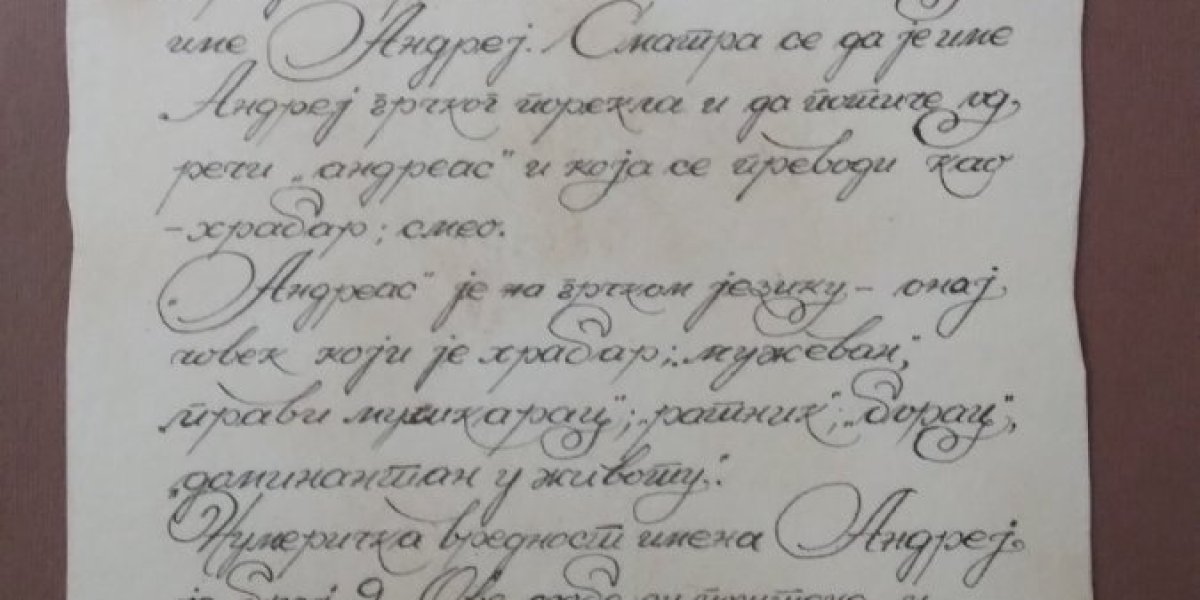 име Андреј. Сматра се да је име
Андреј грчког порекла и да потиче од
речи „андреас“ и која се преводи као
-храбар; смео.
„Андреас“ је на грчком језику - онај
човек који је храбар; „мужеван“;
„прави мушкарац“; „ратник“; „борац“,
„доминантан у животу“.
Нумеричка вредност имена Андреј
је број 9.